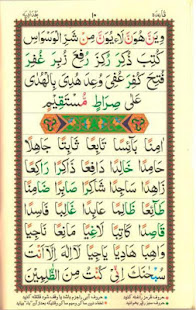 قاعده ١٠ بغدادیه
وَيْنَ هُونَ لَاءِ يُونَ مِنْ شَرِّ الْوَسْوَاسِ
كُتِبَ ذُكِرَ زُكِرَ رُفِعَ زُبُرِ غُفِرَ
فُتِحَ كُفِرَ عُفِيَ وُعِدَ هُدِيَ بِالْهُدٰى
عَلٰى صِرَاطٍ مُسْتَقِيمٍ
اٰمِنًا بَاسِنًا تَابِعًا ثَابِتًا جَاهِلًا
حَامِدًا خَالِدًا دَافِعًا ذَاكِرًا رَاكِعًا
زَاهِدًا سَاجِدًا شَاكِرًا صَابِرًا ضَامِنًا
طَائِعًا ظَالِمًا عَابِدًا غَالِبًا فَاسِدًا
قَاصِدًا كَاتِبًا لَاغِيًا مَانِعًا نَاجِيًا
وَاهِبًا هَادِيًا يَاجِيًا لَا اِلٰهَ اِلَّا اَنْتَ
سُبْحٰنَكَ اِنِّي كُنْتُ مِنَ الظّٰلِمِينَ